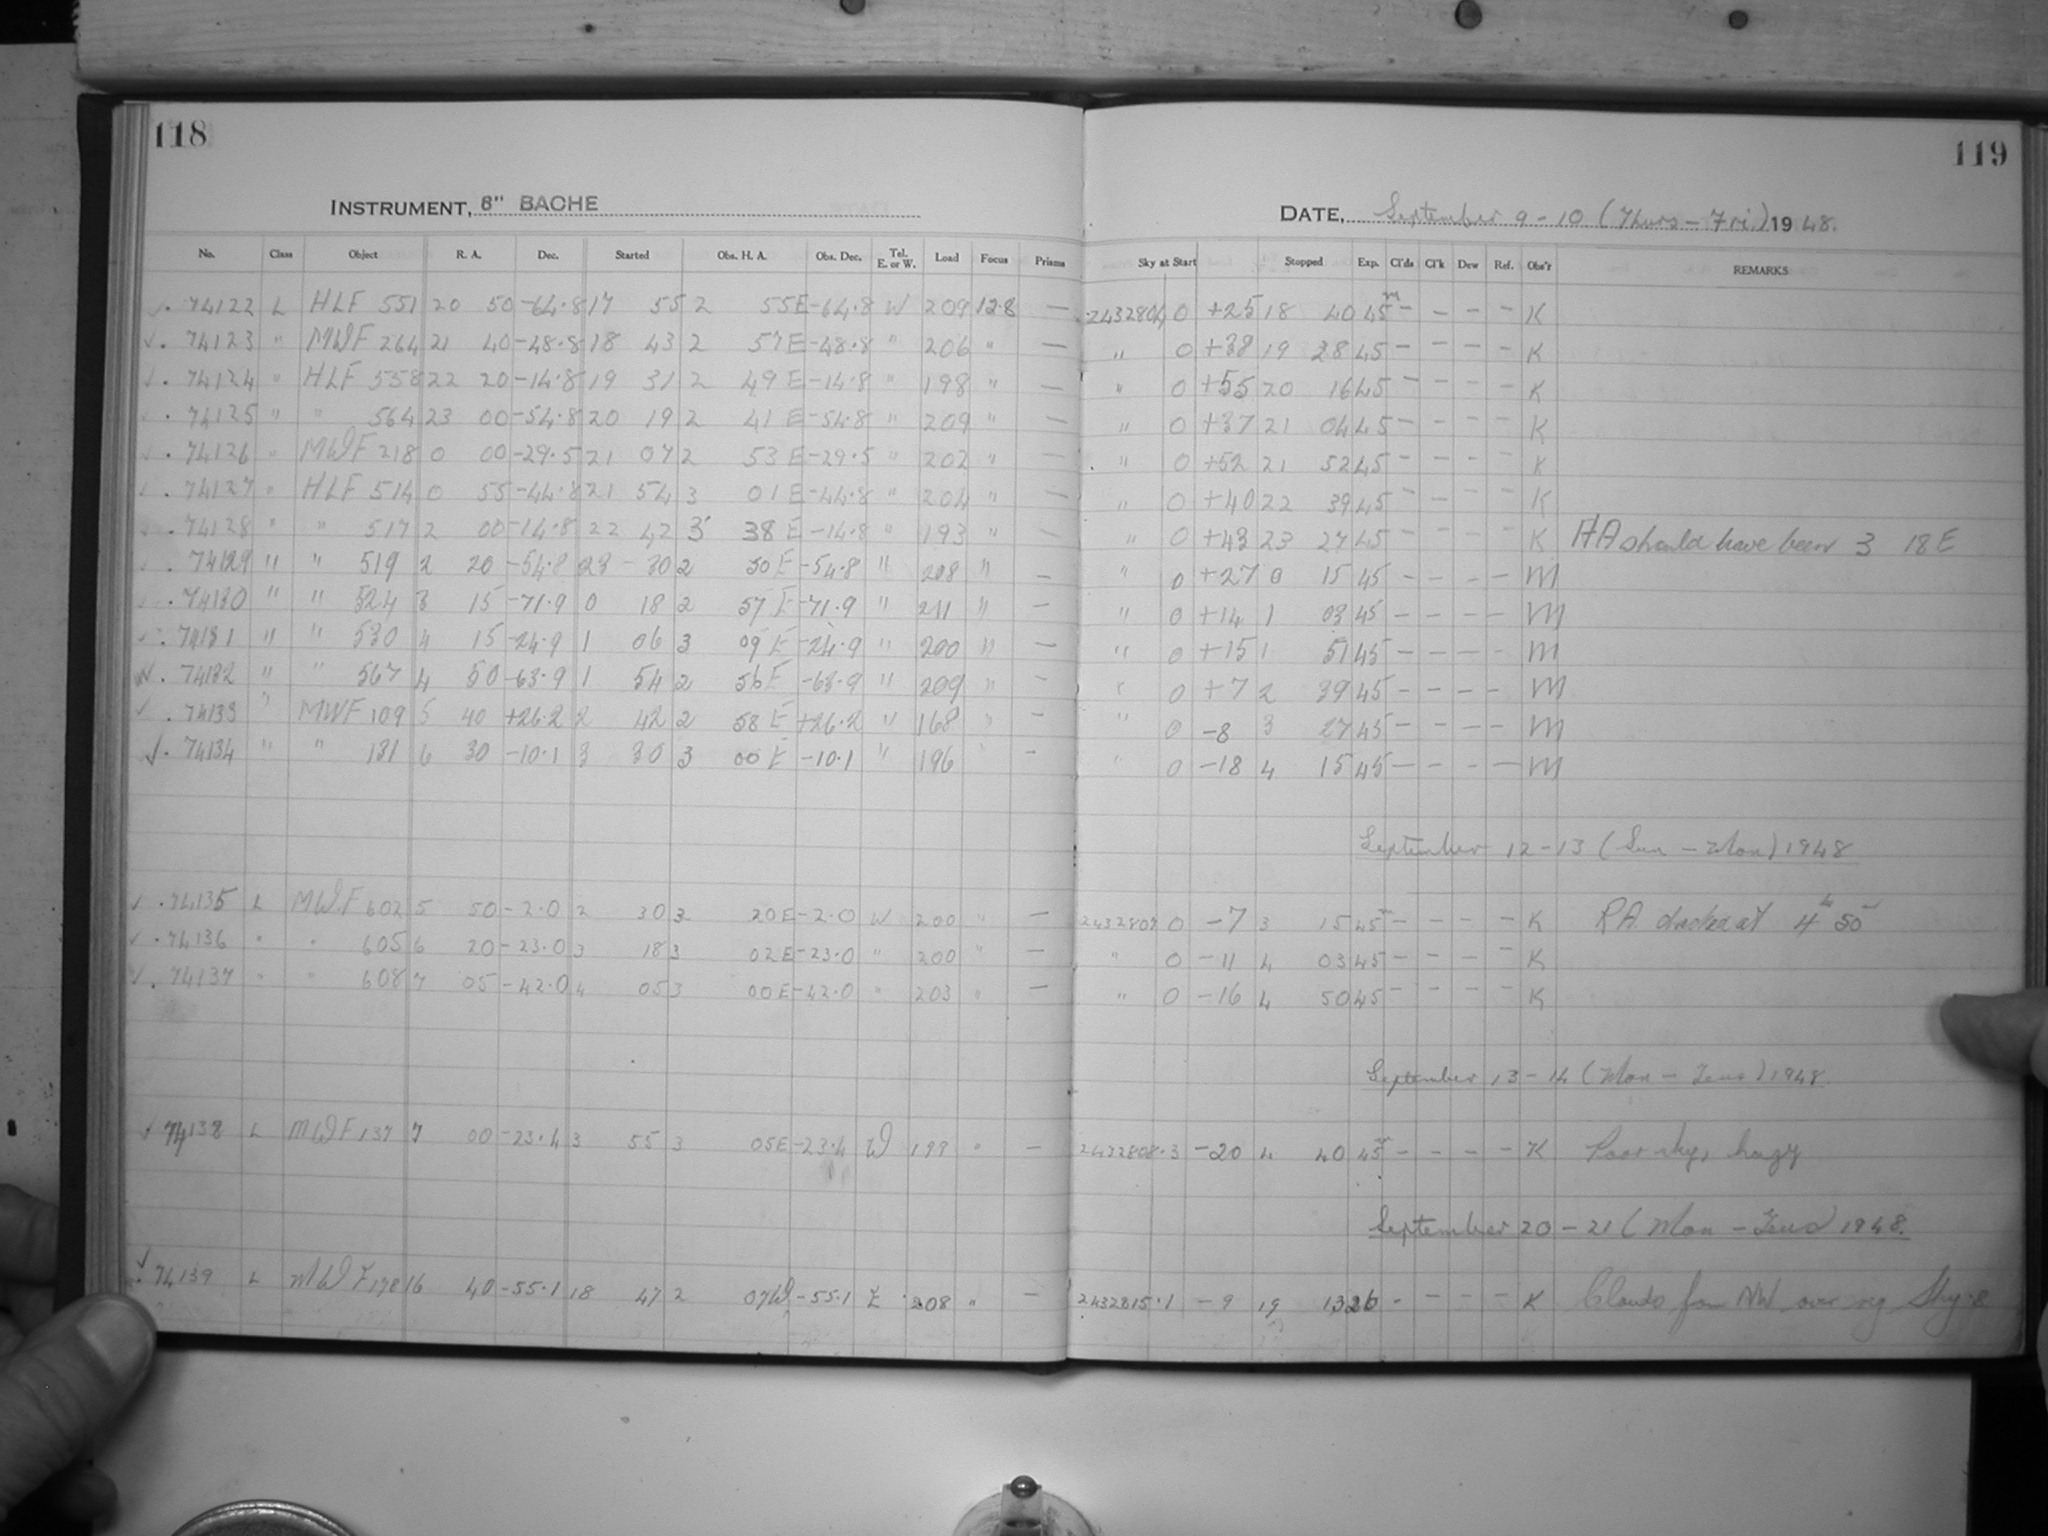 118
119
INSTRUMENT, 8" BACHE
DATE, September 9-10 (Thurs-Fri.) 1948.
No. Class Object R. A. Dec. Started Obs. H. A. Obs. Dec. Tel. E. or W. Load Focus Prisms Sky at Start Stopped Exp. Cl'ds Cl'k Dew Ref. Obs'r REMARKS
✓. 74122 L HLF 551 20 50 -64.8 17 55 2 55E -64.8 W 209 12.8 — 2432804 0 +25 18 40 45m – – – – K
✓. 74123 " MWF 264 21 40 -48.8 18 43 2 57E -48.8 " 206 " — " 0 +38 19 28 45 – – – – K
✓. 74124 " HLF 558 22 20 -14.8 19 31 2 49E -14.8 " 198 " — " 0 +55 20 16 45 – – – – K
✓. 74125 " " 564 23 00 -54.8 20 19 2 41E -54.8 " 209 " — " 0 +37 21 04 45 – – – – K
✓. 74126 " MWF 218 0 00 -29.5 21 07 2 53E -29.5 " 202 " — " 0 +52 21 52 45 – – – – K
✓. 74127 " HLF 514 0 55 -44.8 21 54 3 01E -44.8 " 204 " — " 0 +40 22 39 45 – – – – K
✓. 74128 " " 517 2 00 -14.8 22 42 3 38E -14.8 " 193 " — " 0 +43 23 27 45 – – – – K HA should have been 3 18E
✓. 74129 " " 519 2 20 -54.8 23 30 2 50E -54.8 " 208 " — " 0 +27 0 15 45 – – – – M
✓. 74130 " " 524 3 15 -71.9 0 18 2 57E -71.9 " 211 " — " 0 +14 1 03 45 – – – – M
✓. 74131 " " 530 4 15 -24.9 1 06 3 09E -24.9 " 200 " — " 0 +15 1 51 45 – – – – M
✓. 74132 " " 567 4 50 -63.9 1 54 2 56E -63.9 " 209 " — " 0 +7 2 39 45 – – – – M
✓. 74133 " MWF 109 5 40 +26.2 2 42 2 58E +26.2 " 168 " — " 0 -8 3 27 45 – – – – M
✓. 74134 " " 131 6 30 -10.1 3 30 3 00E -10.1 " 196 " — " 0 -18 4 15 45 – – – – M
September 12-13 (Sun-Mon) 1948
✓. 74135 L MWF 602 5 50 -2.0 2 30 3 20E -2.0 W 200 " — 2432807 0 -7 3 15 45m – – – – K RA clocked at 4h 50m
✓. 74136 " " 605 6 20 -23.0 3 18 3 02E -23.0 " 200 " — " 0 -11 4 03 45 – – – – K
✓. 74137 " " 608 7 05 -42.0 4 05 3 00E -42.0 " 203 " — " 0 -16 4 50 45 – – – – K
September 13-14 (Mon-Tues) 1948.
✓ 74138 L MWF 137 7 00 -23.4 3 55 3 05E -23.4 W 199 " — 2432808.3 -20 4 40 45m – – – – K Poor sky, hazy
September 20-21 (Mon-Tues) 1948.
✓. 74139 L MWF 178 16 40 -55.1 18 47 2 07W -55.1 E 208 " — 2432815.1 -9 19 13 26 – – – – K Clouds from NW over Sky.8